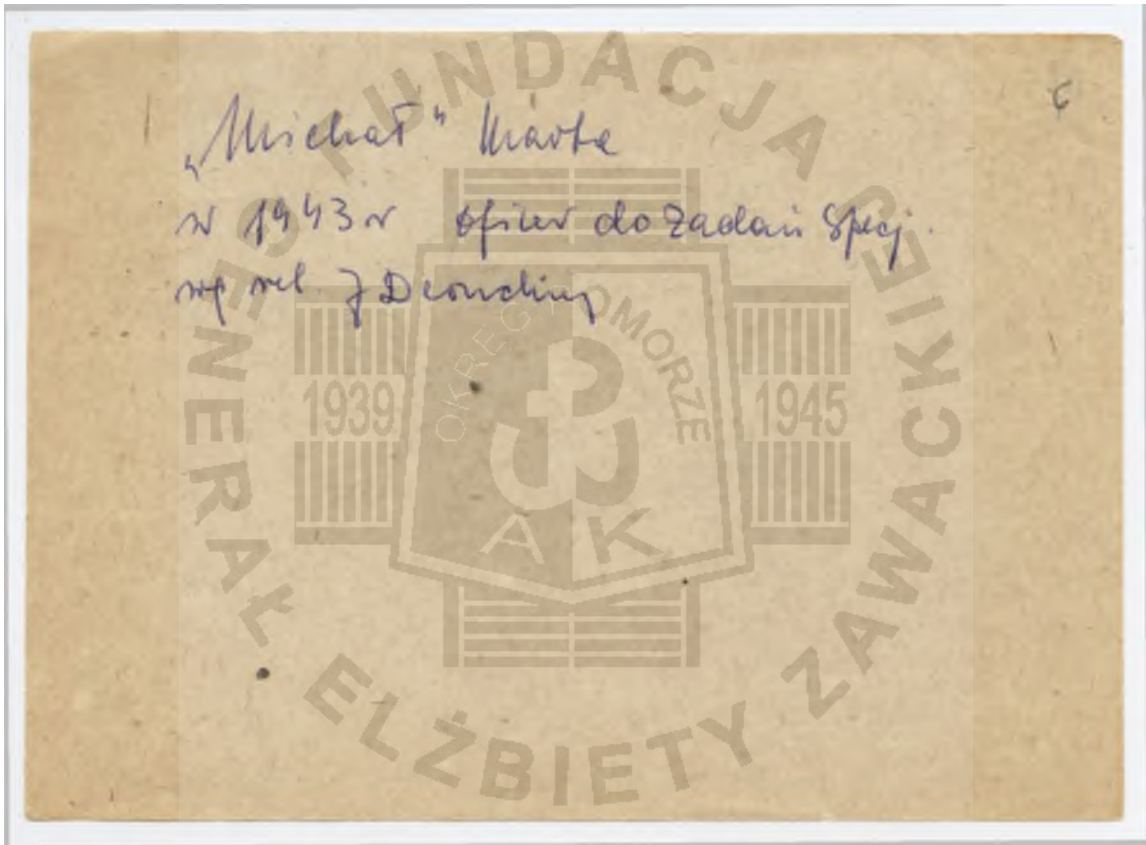 6
„Michał" Marta
w 1943 r oficer do zadań Specj.
wg rel. J
FUNDACJA GENERAŁ ELŻBIETY ZAWACKIEJ
OKRĘG POMORZE
1939
1945
A K